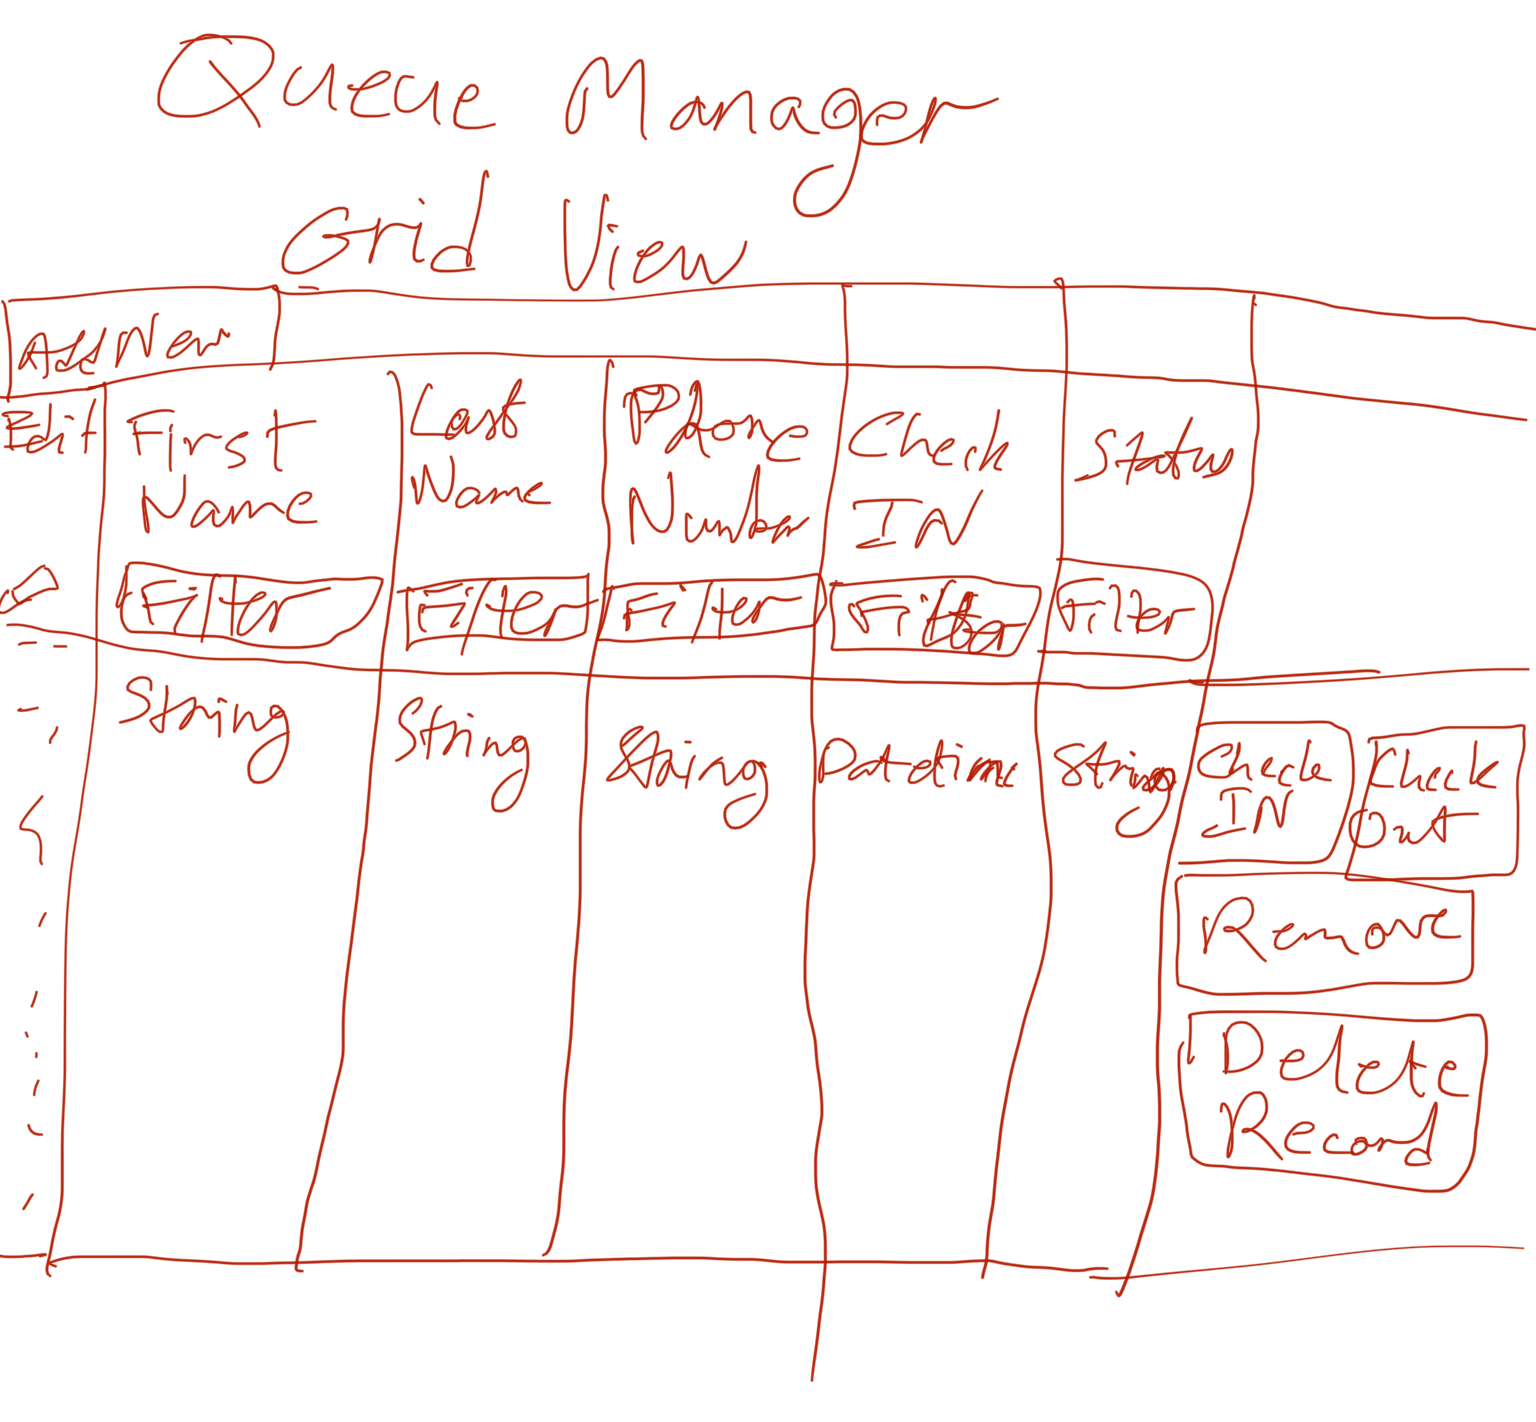 Queue Manager
Grid View
Add New
Edit First Name Last Name Phone Number Check IN Status
Filter Filter Filter Filter Filter
String String String Datetime String
Check IN
Check Out
Remove
Delete Record